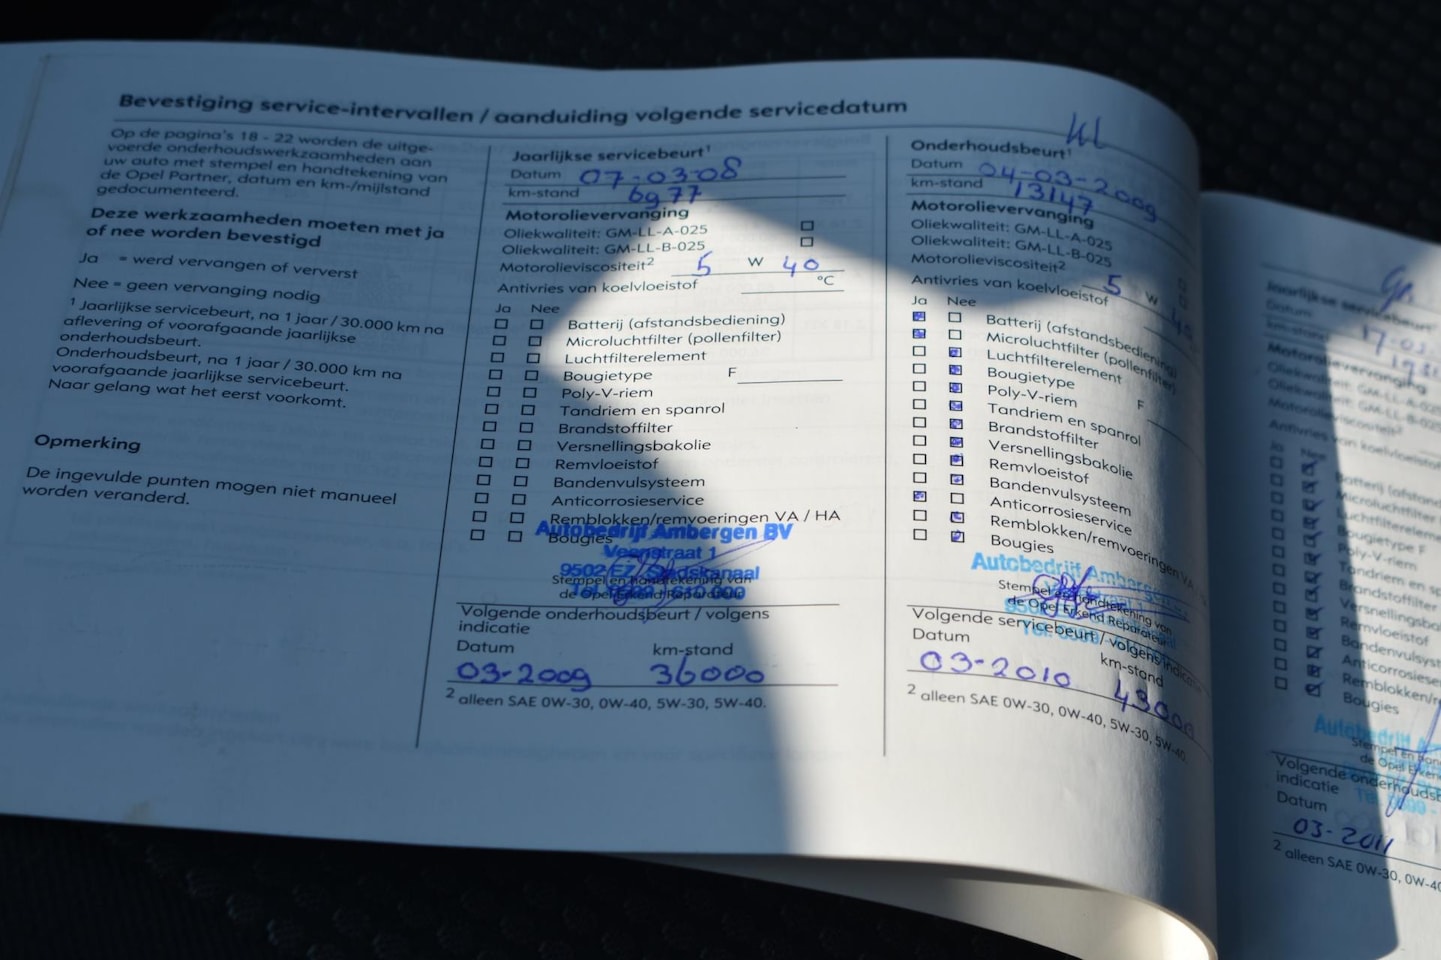 Bevestiging service-intervallen / aanduiding volgende servicedatum
Op de pagina's 18 - 22 worden de uitge-
voerde onderhoudswerkzaamheden aan
uw auto met stempel en handtekening van
de Opel Partner, datum en km-/mijlstand
gedocumenteerd.
Deze werkzaamheden moeten met ja
of nee worden bevestigd
Ja = werd vervangen of ververst
Nee = geen vervanging nodig
1 Jaarlijkse servicebeurt, na 1 jaar / 30.000 km na
aflevering of voorafgaande jaarlijkse
onderhoudsbeurt.
Onderhoudsbeurt, na 1 jaar / 30.000 km na
voorafgaande jaarlijkse servicebeurt.
Naar gelang wat het eerst voorkomt.
Opmerking
De ingevulde punten mogen niet manueel
worden veranderd.
Jaarlijkse servicebeurt1
Datum 07-03-08
km-stand 6977
Motorolievervanging
Oliekwaliteit: GM-LL-A-025
Oliekwaliteit: GM-LL-B-025
Motorolieviscositeit2 5 W 40
Antivries van koelvloeistof °C
Ja Nee
Batterij (afstandsbediening)
Microluchtfilter (pollenfilter)
Luchtfilterelement
Bougietype F
Poly-V-riem
Tandriem en spanrol
Brandstoffilter
Versnellingsbakolie
Remvloeistof
Bandenvulsysteem
Anticorrosieservice
Remblokken/remvoeringen VA / HA
Bougies
Autobedrijf Ambergen BV
Veenstraat 1
9502 EZ Stadskanaal
Stempel en handtekening van
de Opel Erkend Reparateur
Volgende onderhoudsbeurt / volgens
indicatie
Datum km-stand
03-2009 36000
2 alleen SAE 0W-30, 0W-40, 5W-30, 5W-40.
Onderhoudsbeurt1
Datum 04-03-2009
km-stand 13147
Motorolievervanging
Oliekwaliteit: GM-LL-A-025
Oliekwaliteit: GM-LL-B-025
Motorolieviscositeit2 5 W 40
Antivries van koelvloeistof
Ja Nee
Batterij (afstandsbediening)
Microluchtfilter (pollenfilter)
Luchtfilterelement
Bougietype F
Poly-V-riem
Tandriem en spanrol
Brandstoffilter
Versnellingsbakolie
Remvloeistof
Bandenvulsysteem
Anticorrosieservice
Remblokken/remvoeringen VA
Bougies
Autobedrijf Ambergen
Stempel en handtekening van
de Opel Erkend Reparateur
Volgende servicebeurt / volgens
Datum km-stand
03-2010 43000
2 alleen SAE 0W-30, 0W-40, 5W-30, 5W-40.
Jaarlijkse servicebeurt
Datum
km-stand
Motorolievervanging
Oliekwaliteit: GM-LL-A-025
Oliekwaliteit: GM-LL-B-025
Antivries van koelvloeistof
Ja Nee
Bougietype F
Poly-V-riem
Bougies
Autobedrijf
Volgende
indicatie
Datum
03-2011
2 alleen SAE 0W-30, 0W-40